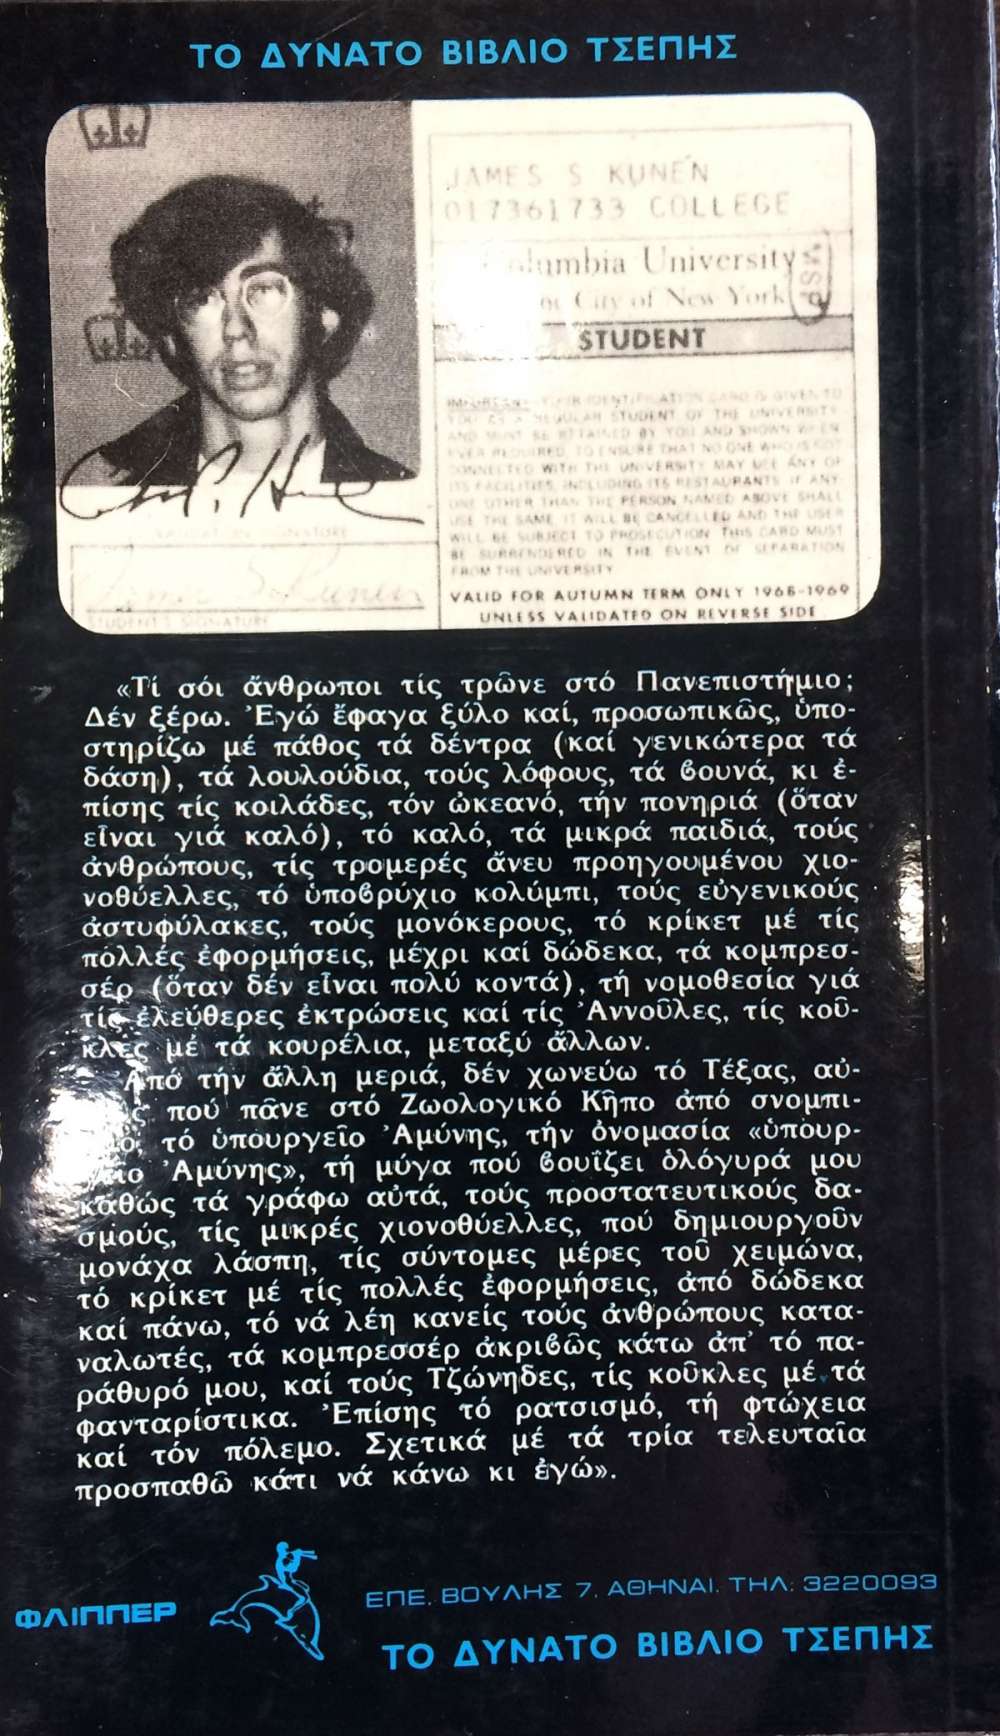 ΤΟ ΔΥΝΑΤΟ ΒΙΒΛΙΟ ΤΣΕΠΗΣ
JAMES S KUNEN
017361733 COLLEGE
Columbia University
City of New York
STUDENT
IMPORTANT YOUR IDENTIFICATION CARD IS GIVEN TO
YOU AS A REGULAR STUDENT OF THE UNIVERSITY
AND MUST BE RETAINED BY YOU AND SHOWN WHEN
EVER REQUIRED, TO ENSURE THAT NO ONE WHO IS NOT
CONNECTED WITH THE UNIVERSITY MAY USE ANY OF
ITS FACILITIES, INCLUDING ITS RESTAURANTS IF ANY-
ONE OTHER THAN THE PERSON NAMED ABOVE SHALL
USE THE SAME IT WILL BE CANCELLED AND THE USER
WILL BE SUBJECT TO PROSECUTION THIS CARD MUST
BE SURRENDERED IN THE EVENT OF SEPARATION
FROM THE UNIVERSITY
VALID FOR AUTUMN TERM ONLY 1968-1969
UNLESS VALIDATED ON REVERSE SIDE
STUDENT'S SIGNATURE
«Τί σόι ἄνθρωποι τίς τρῶνε στό Πανεπιστήμιο;
Δέν ξέρω. Ἐγώ ἔφαγα ξύλο καί, προσωπικῶς, ὑπο-
στηρίζω μέ πάθος τά δέντρα (καί γενικώτερα τά
δάση), τά λουλούδια, τούς λόφους, τά βουνά, κι ἐ-
πίσης τίς κοιλάδες, τόν ὠκεανό, τήν πονηριά (ὅταν
εἶναι γιά καλό), τό καλό, τά μικρά παιδιά, τούς
ἀνθρώπους, τίς τρομερές ἄνευ προηγουμένου χιο-
νοθύελλες, τό ὑποβρύχιο κολύμπι, τούς εὐγενικούς
ἀστυφύλακες, τούς μονόκερους, τό κρίκετ μέ τίς
πολλές ἐφορμήσεις, μέχρι καί δώδεκα, τά κομπρεσ-
σέρ (ὅταν δέν εἶναι πολύ κοντά), τή νομοθεσία γιά
τίς ἐλεύθερες ἐκτρώσεις καί τίς Ἀννοῦλες, τίς κοῦ-
κλες μέ τά κουρέλια, μεταξύ ἄλλων.
Ἀπό τήν ἄλλη μεριά, δέν χωνεύω τό Τέξας, αὐ-
πού πᾶνε στό Ζωολογικό Κῆπο ἀπό σνομπι-
τό ὑπουργεῖο Ἀμύνης, τήν ὀνομασία «ὑπουρ-
Ἀμύνης», τή μύγα πού βουΐζει ὁλόγυρά μου
καθώς τά γράφω αὐτά, τούς προστατευτικούς δα-
σμούς, τίς μικρές χιονοθύελλες, πού δημιουργοῦν
μονάχα λάσπη, τίς σύντομες μέρες τοῦ χειμώνα,
τό κρίκετ μέ τίς πολλές ἐφορμήσεις, ἀπό δώδεκα
καί πάνω, τό νά λέη κανείς τούς ἀνθρώπους κατα-
ναλωτές, τά κομπρεσσέρ ἀκριβῶς κάτω ἀπ' τό πα-
ράθυρό μου, καί τούς Τζώνηδες, τίς κοῦκλες μέ τά
φανταρίστικα. Ἐπίσης τό ρατσισμό, τή φτώχεια
καί τόν πόλεμο. Σχετικά μέ τά τρία τελευταῖα
προσπαθῶ κάτι νά κάνω κι ἐγώ».
ΦΛΙΠΠΕΡ
ΕΠΕ. ΒΟΥΛΗΣ 7. ΑΘΗΝΑΙ. ΤΗΛ: 3220093
ΤΟ ΔΥΝΑΤΟ ΒΙΒΛΙΟ ΤΣΕΠΗΣ